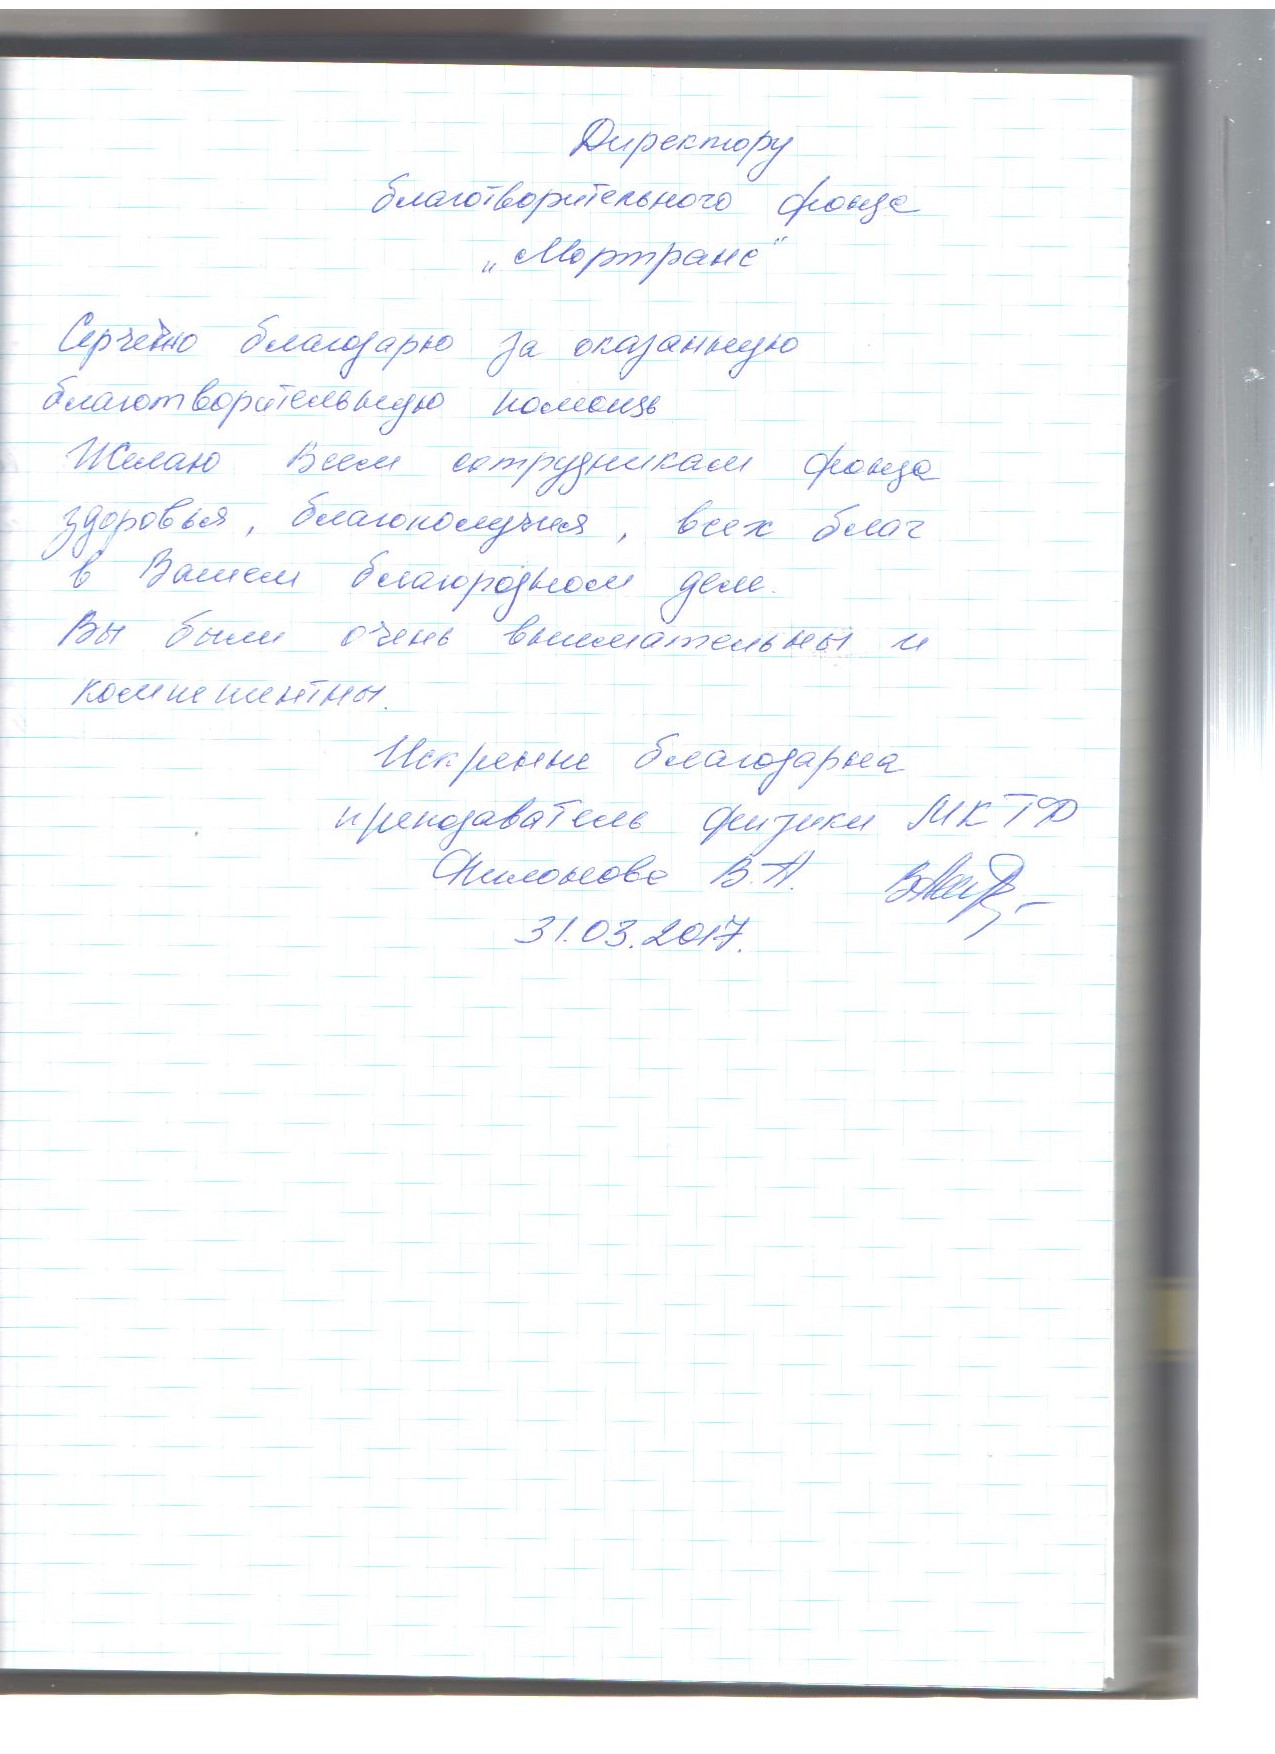 Директору
благотворительного фонда
„Мортранс"
Сердечно благодарю за оказанную
благотворительную помощь
Желаю Всем сотрудникам фонда
здоровья, благополучия, всех благ
в Вашем благородном деле.
Вы были очень внимательны и
компетентны.
Искренне благодарна
преподаватель физики МКТФ
Филонова В.А.
31.03.2017.